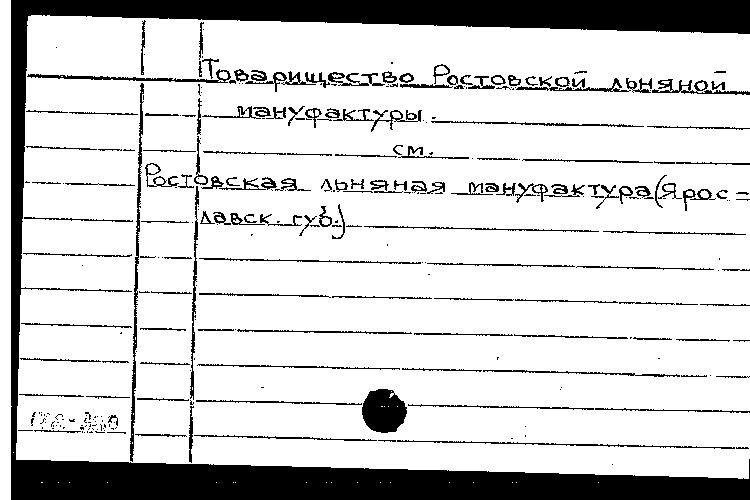 Товарищество Ростовской льняной
мануфактуры.
см.
Ростовская льняная мануфактура (Ярос=
лавск. губ.)